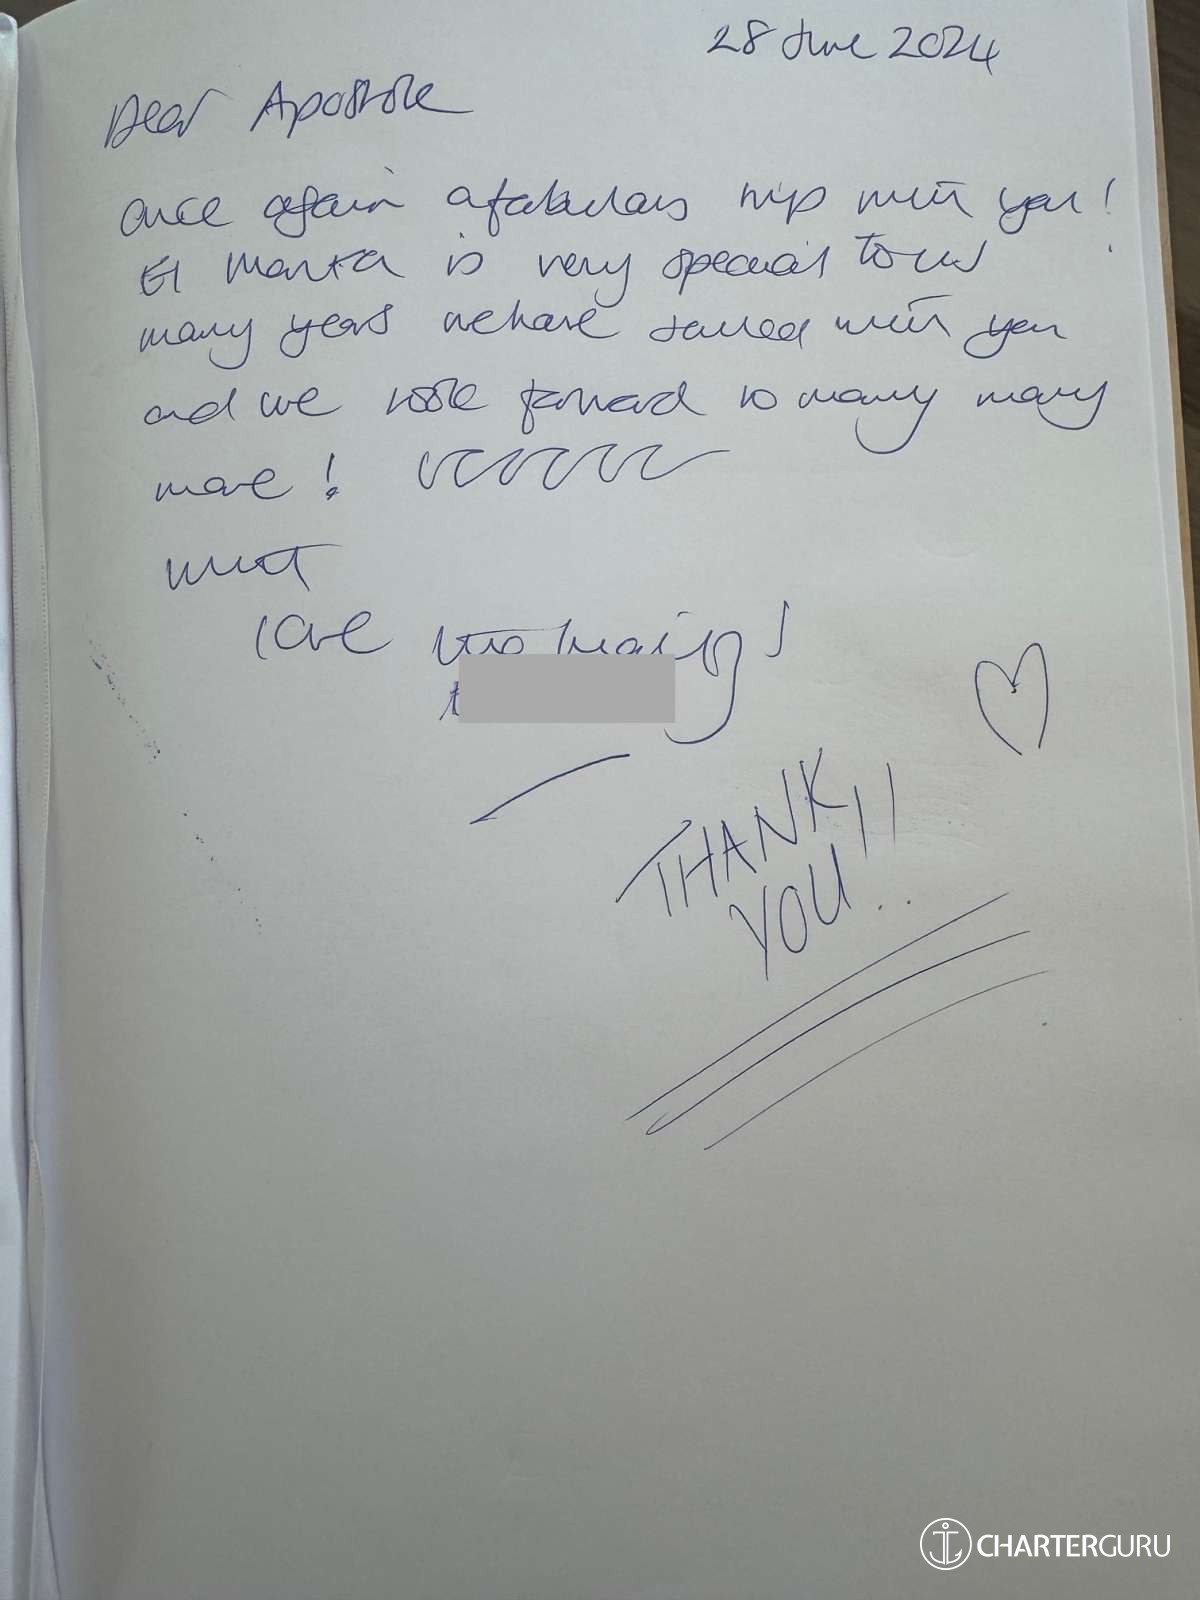 28 June 2024
Dear Apostole
once again a fabulous trip with you!
El Marka is very special to us
many years we have sailed with you
and we look forward to many many
more!
with
love
THANK
YOU!!
CHARTERGURU